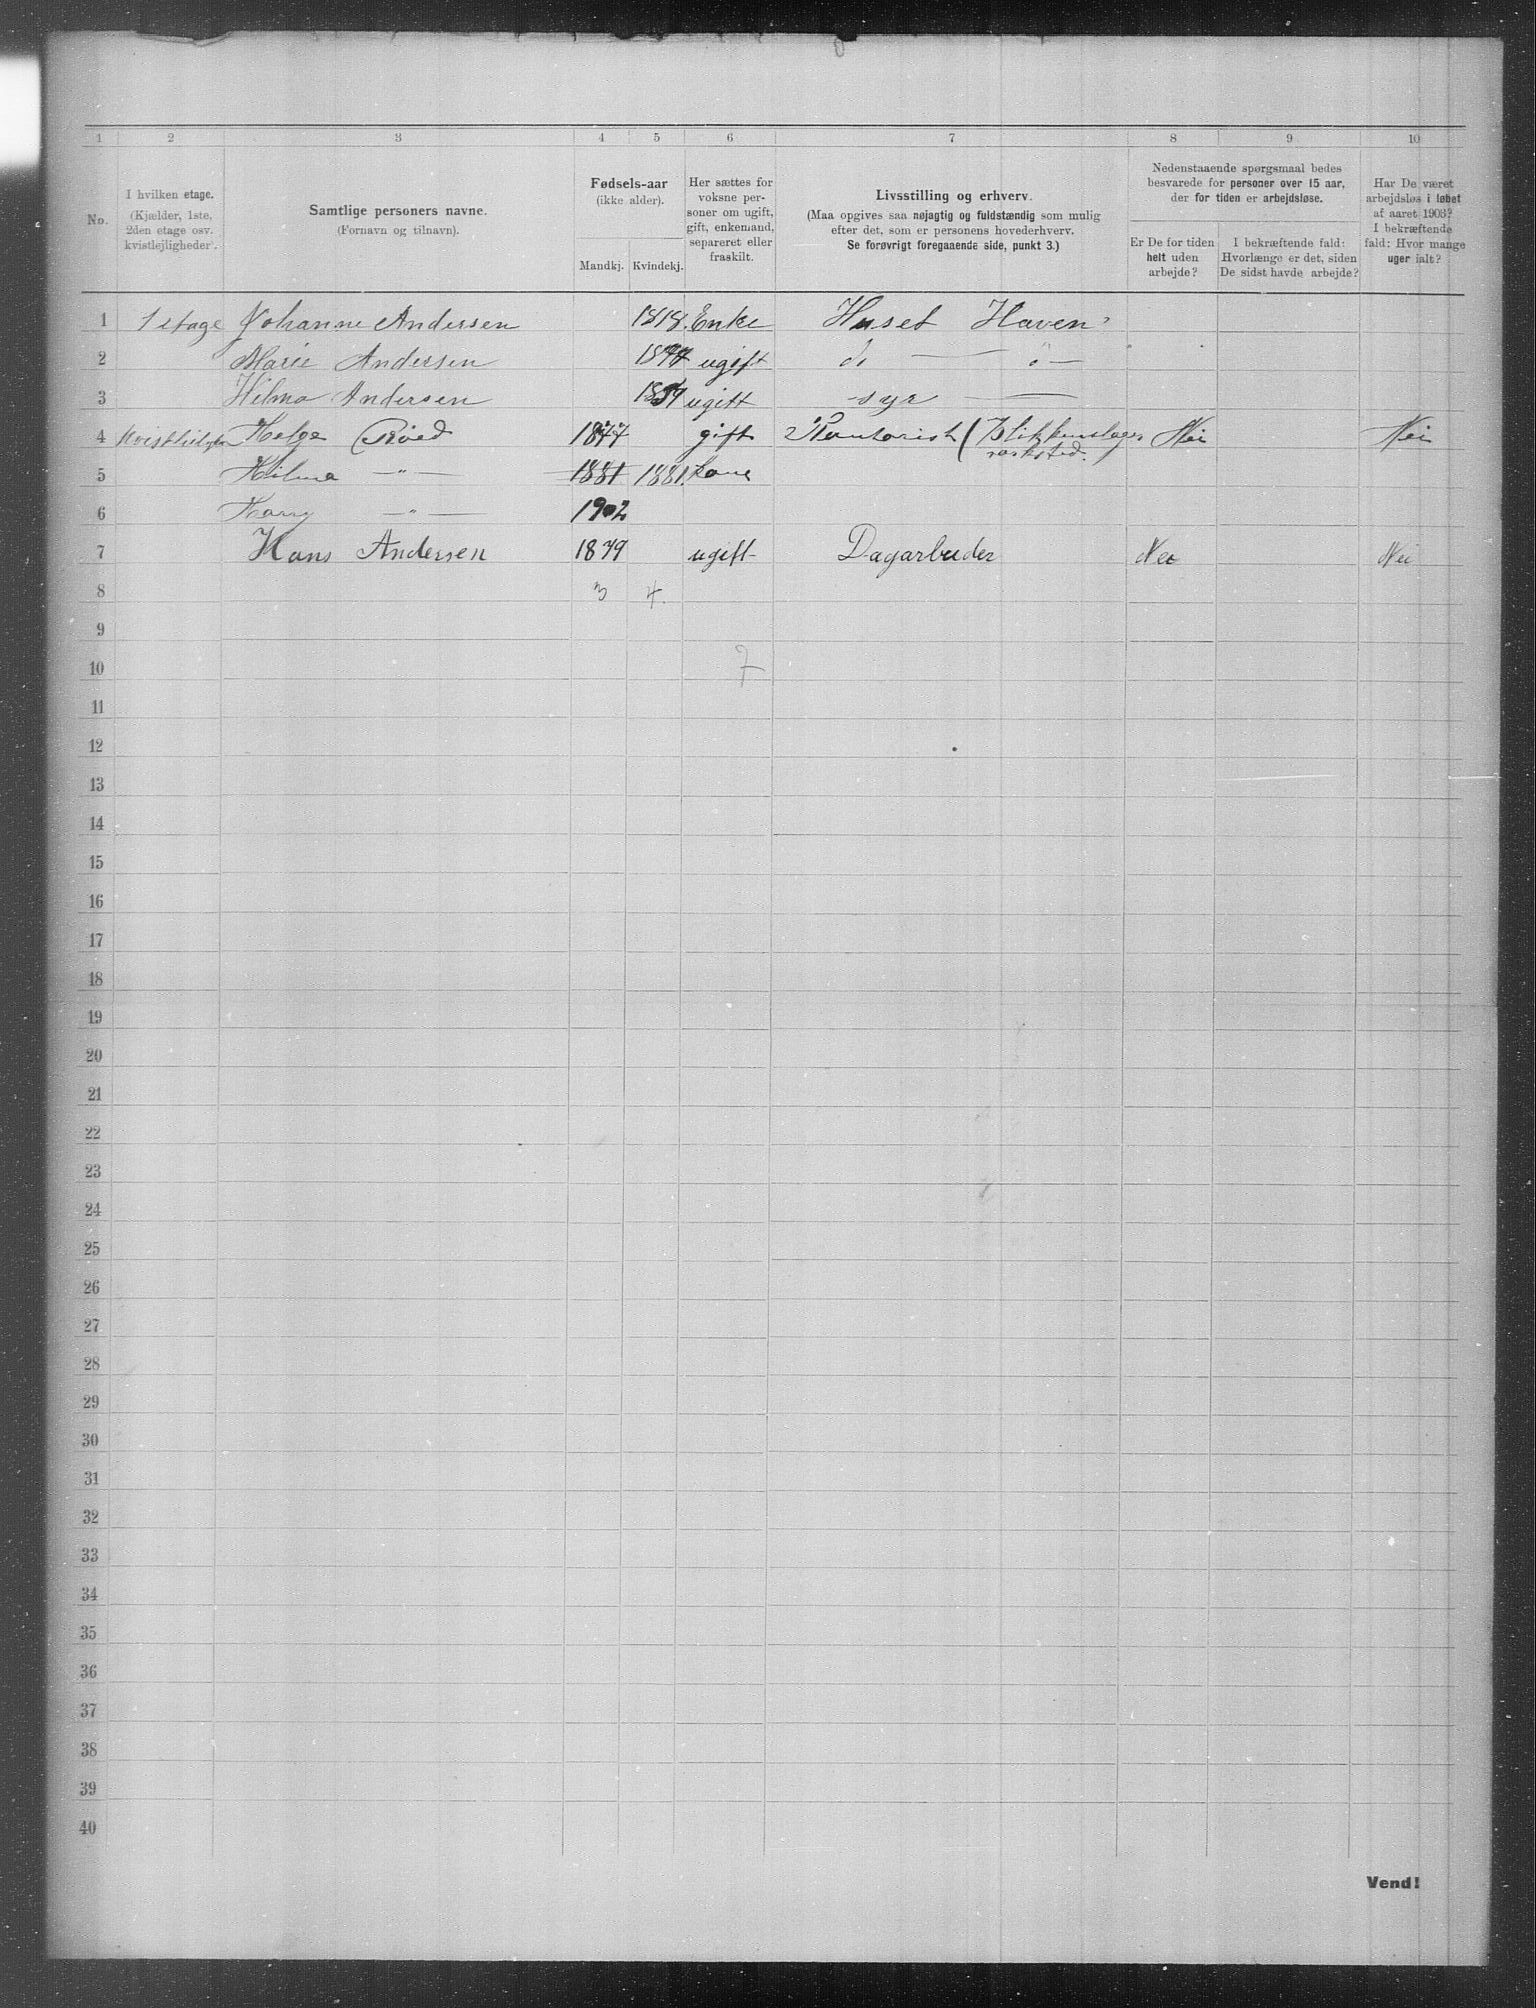 1 2 3 4 5 6 7 8 9 10
No.
I hvilken etage.
(Kjælder, 1ste,
2den etage osv.
kvistlejligheder).
Samtlige personers navne.
(Fornavn og tilnavn).
Fødsels-aar
(ikke alder).
Mandkj. Kvindekj.
Her sættes for
voksne per-
soner om ugift,
gift, enkemand,
separeret eller
fraskilt.
Livsstilling og erhverv.
(Maa opgives saa nøjagtig og fuldstændig som mulig
efter det, som er personens hovederhverv.
Se forøvrigt foregaaende side, punkt 3.)
Nedenstaaende spørgsmaal bedes
besvarede for personer over 15 aar,
der for tiden er arbejdsløse.
Er De for tiden
helt uden
arbejde?
I bekræftende fald:
Hvorlænge er det, siden
De sidst havde arbejde?
Har De været
arbejdsløs i løbet
af aaret 1903?
I bekræftende
fald: Hvor mange
uger ialt?
1 1 etage Johanne Andersen 1818. Enke Huset Haven
2 Marie Andersen ugift do — " —
3 Hilma Andersen ugift syr —
4 Helge Röed gift Kontorist (Blikkenslager Nei Nei
verksted.)
5 Hilma — " — 1881 1881. Kone
6 Harry — " — 1902
7 Hans Andersen 1879 ugift Dagarbeider Nei Nei
8 3 4.
9
10 7
11
12
13
14
15
16
17
18
19
20
21
22
23
24
25
26
27
28
29
30
31
32
33
34
35
36
37
38
39
40
Vend!